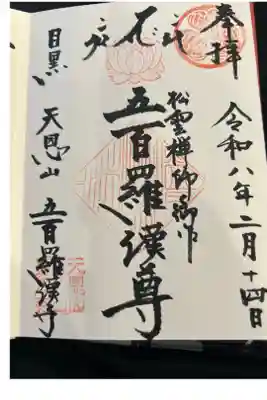 奉拝
令和八年二月十四日
松雲禅師御作
五百羅漢尊
目黒 天恩山 五百羅漢寺